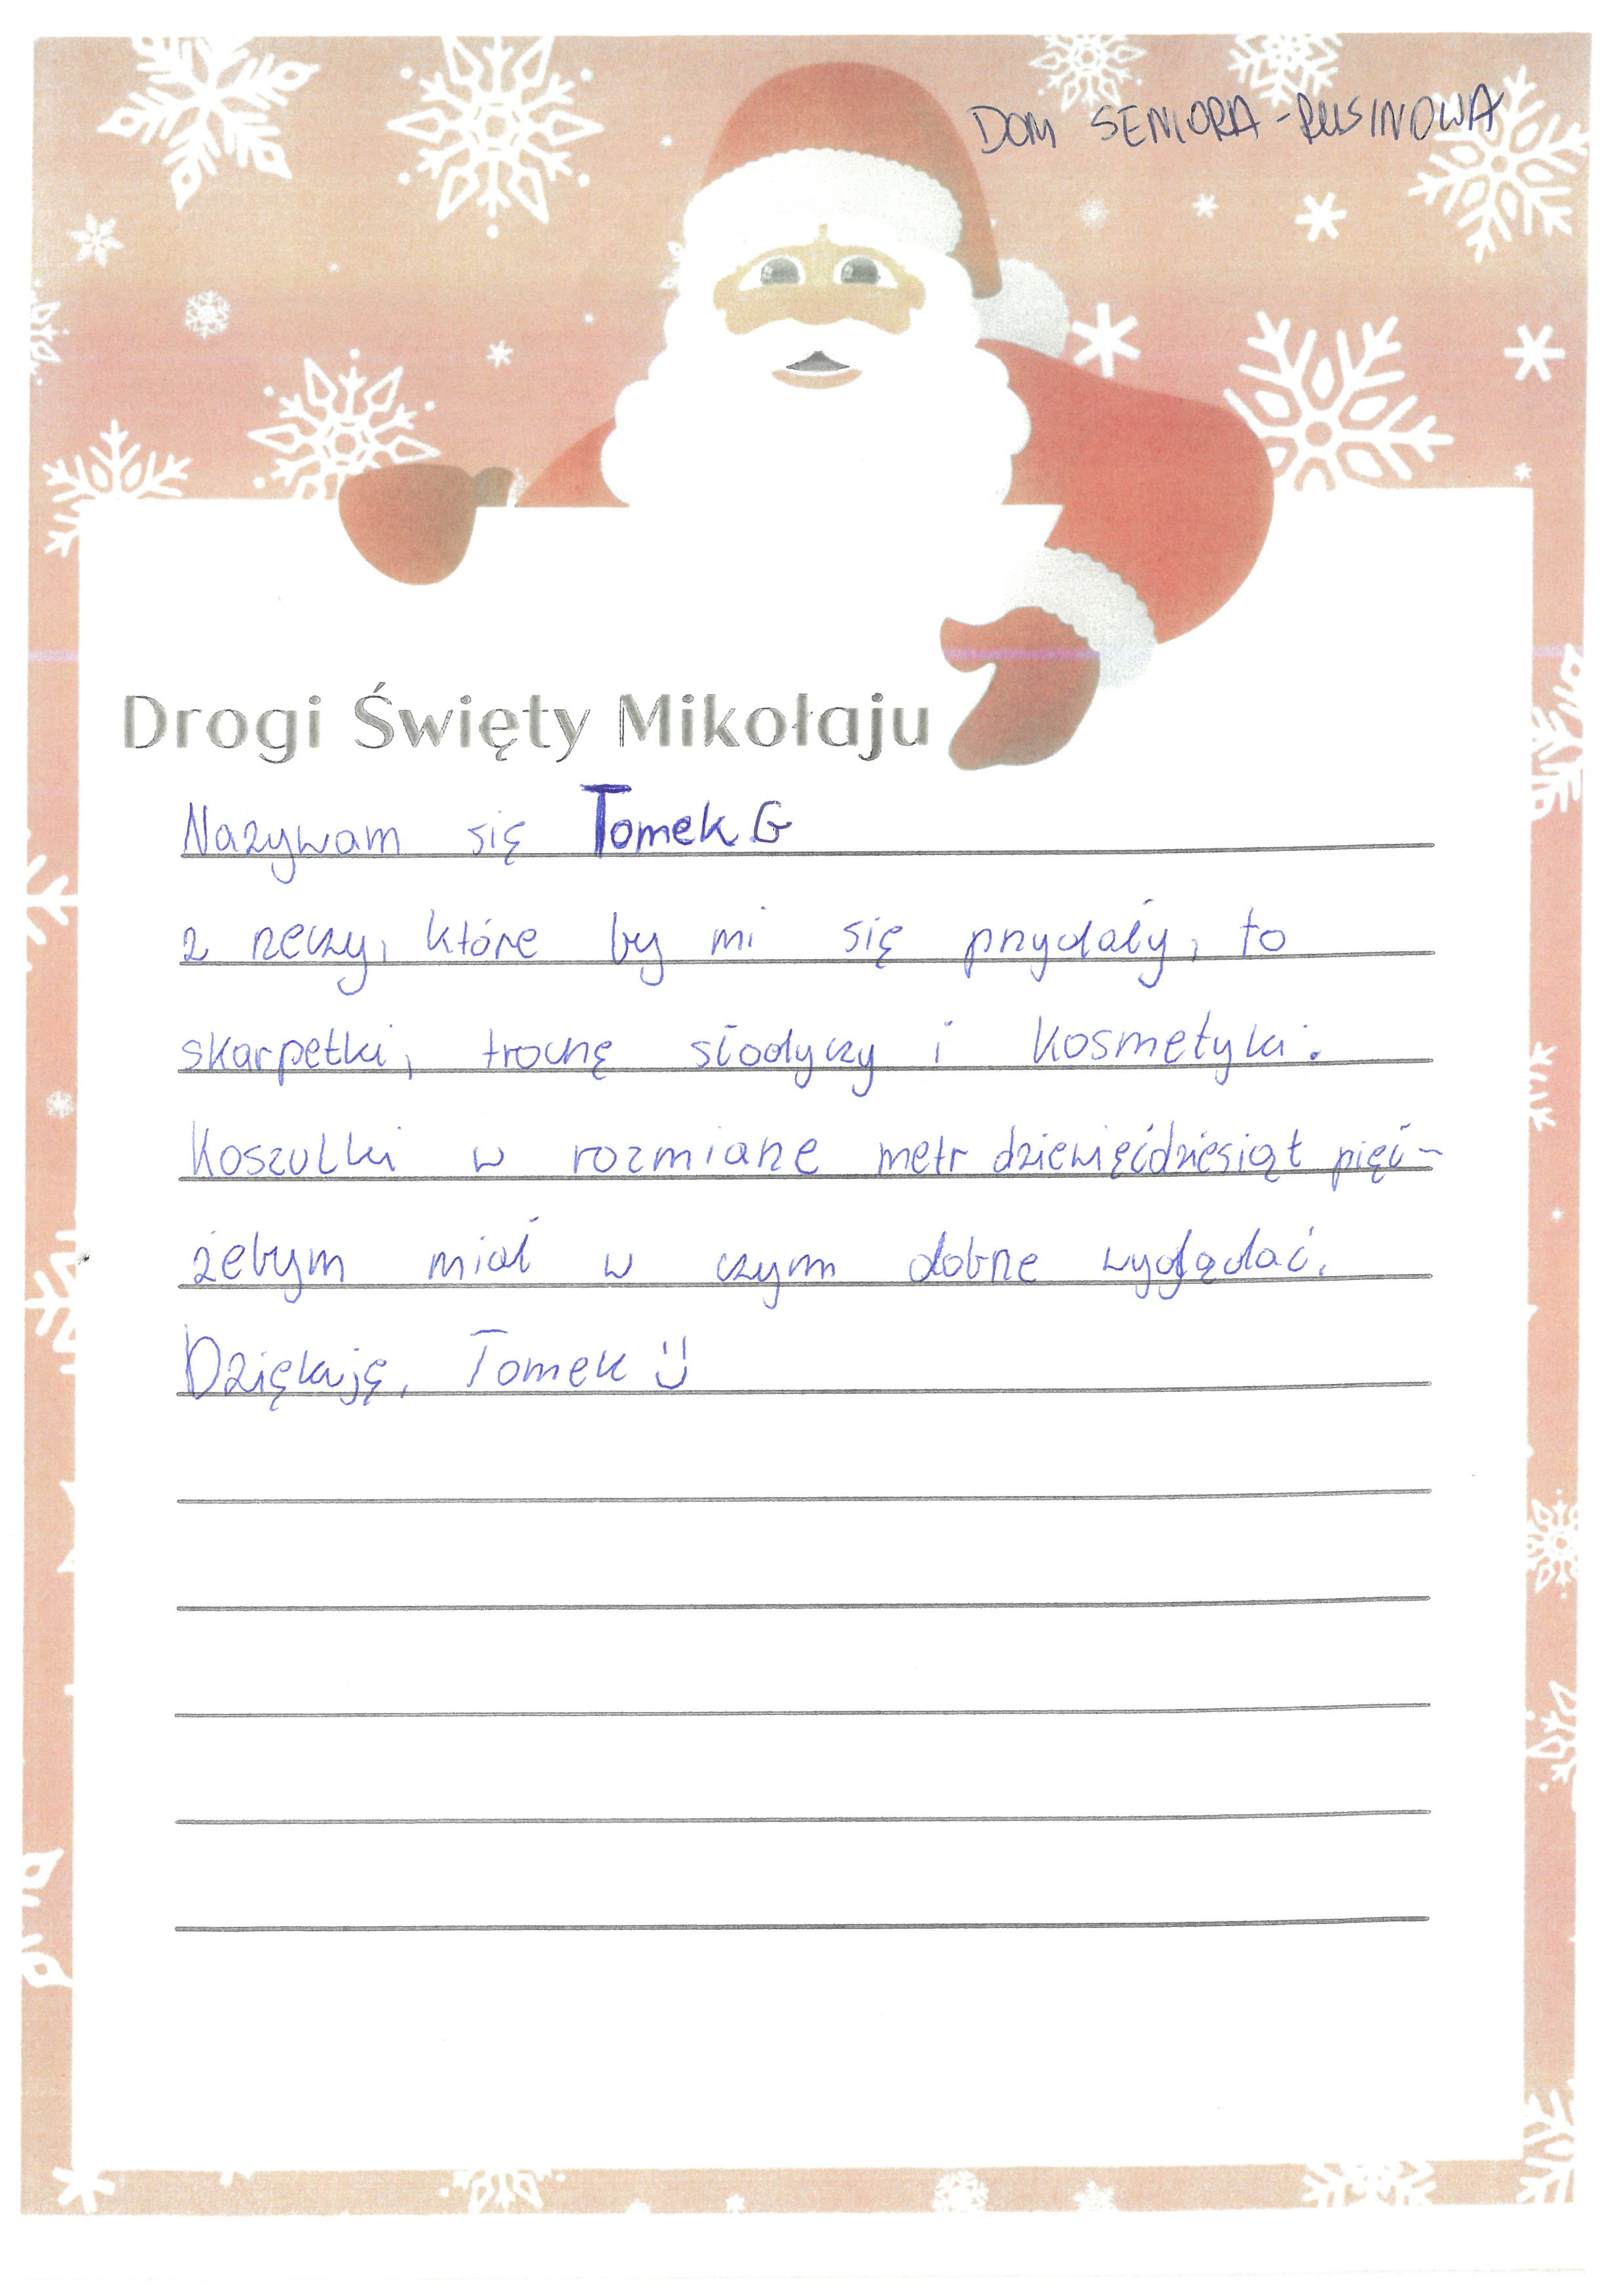 DOM SENIORA - RUSINOWA
Drogi Święty Mikołaju
Nazywam się Tomek G
z rzeczy, które by mi się przydały, to
skarpetki, trochę słodyczy i kosmetyki.
Koszulki w rozmiarze metr dziewięćdziesiąt pięć -
żebym miał w czym dobrze wyglądać.
Dziękuję, Tomek :)